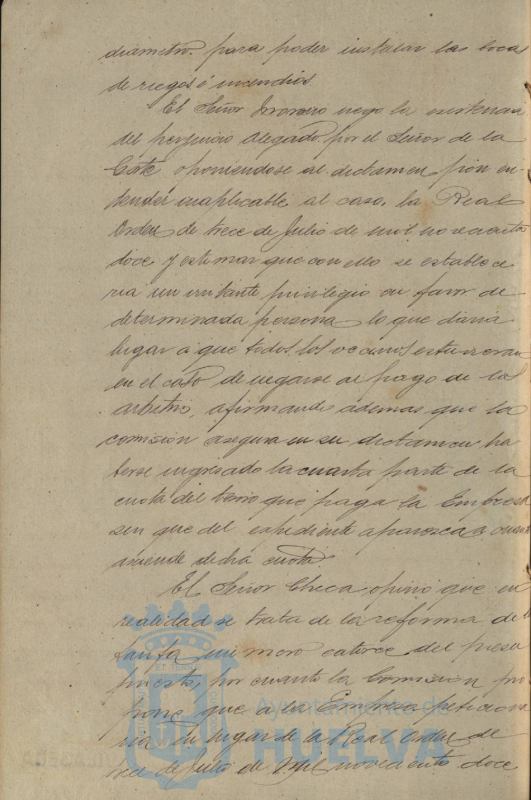 diametro para poder instalar las bocas
de riegos é incendios.
El Señor negó la existencia
del perjuicio alegado por el Señor de la
Corte, oponiendose al dictamen por en-
tender inaplicable al caso, la Real
Orden de trece de Julio de mil novecientos
doce y estimar que con ello se establece
ria un irritante privilegio en favor de
determinada persona lo que daria
lugar a que todos los vecinos estuvieran
en el caso de negarse al pago de los
arbitrios, afirmando ademas que la
comision asegura en su dictamen ha
berse ingresado la cuarta parte de la
cuota del que paga la Empresa
sin que del expediente aparezca a cuanto
asciende dicha cuota.
El Señor Checa, opinó que en
realidad se trata de la reforma de la
tarifa número catorce del presu
puesto, por cuanto la Comision pro
pone que a la Empresa peticiona
ria en lugar de la Real orden de
trece de Julio de mil novecientos doce
Ayuntamiento de
HUELVA